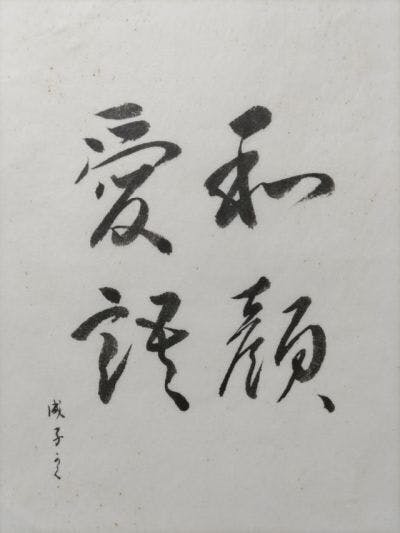 和顔
愛語
成子